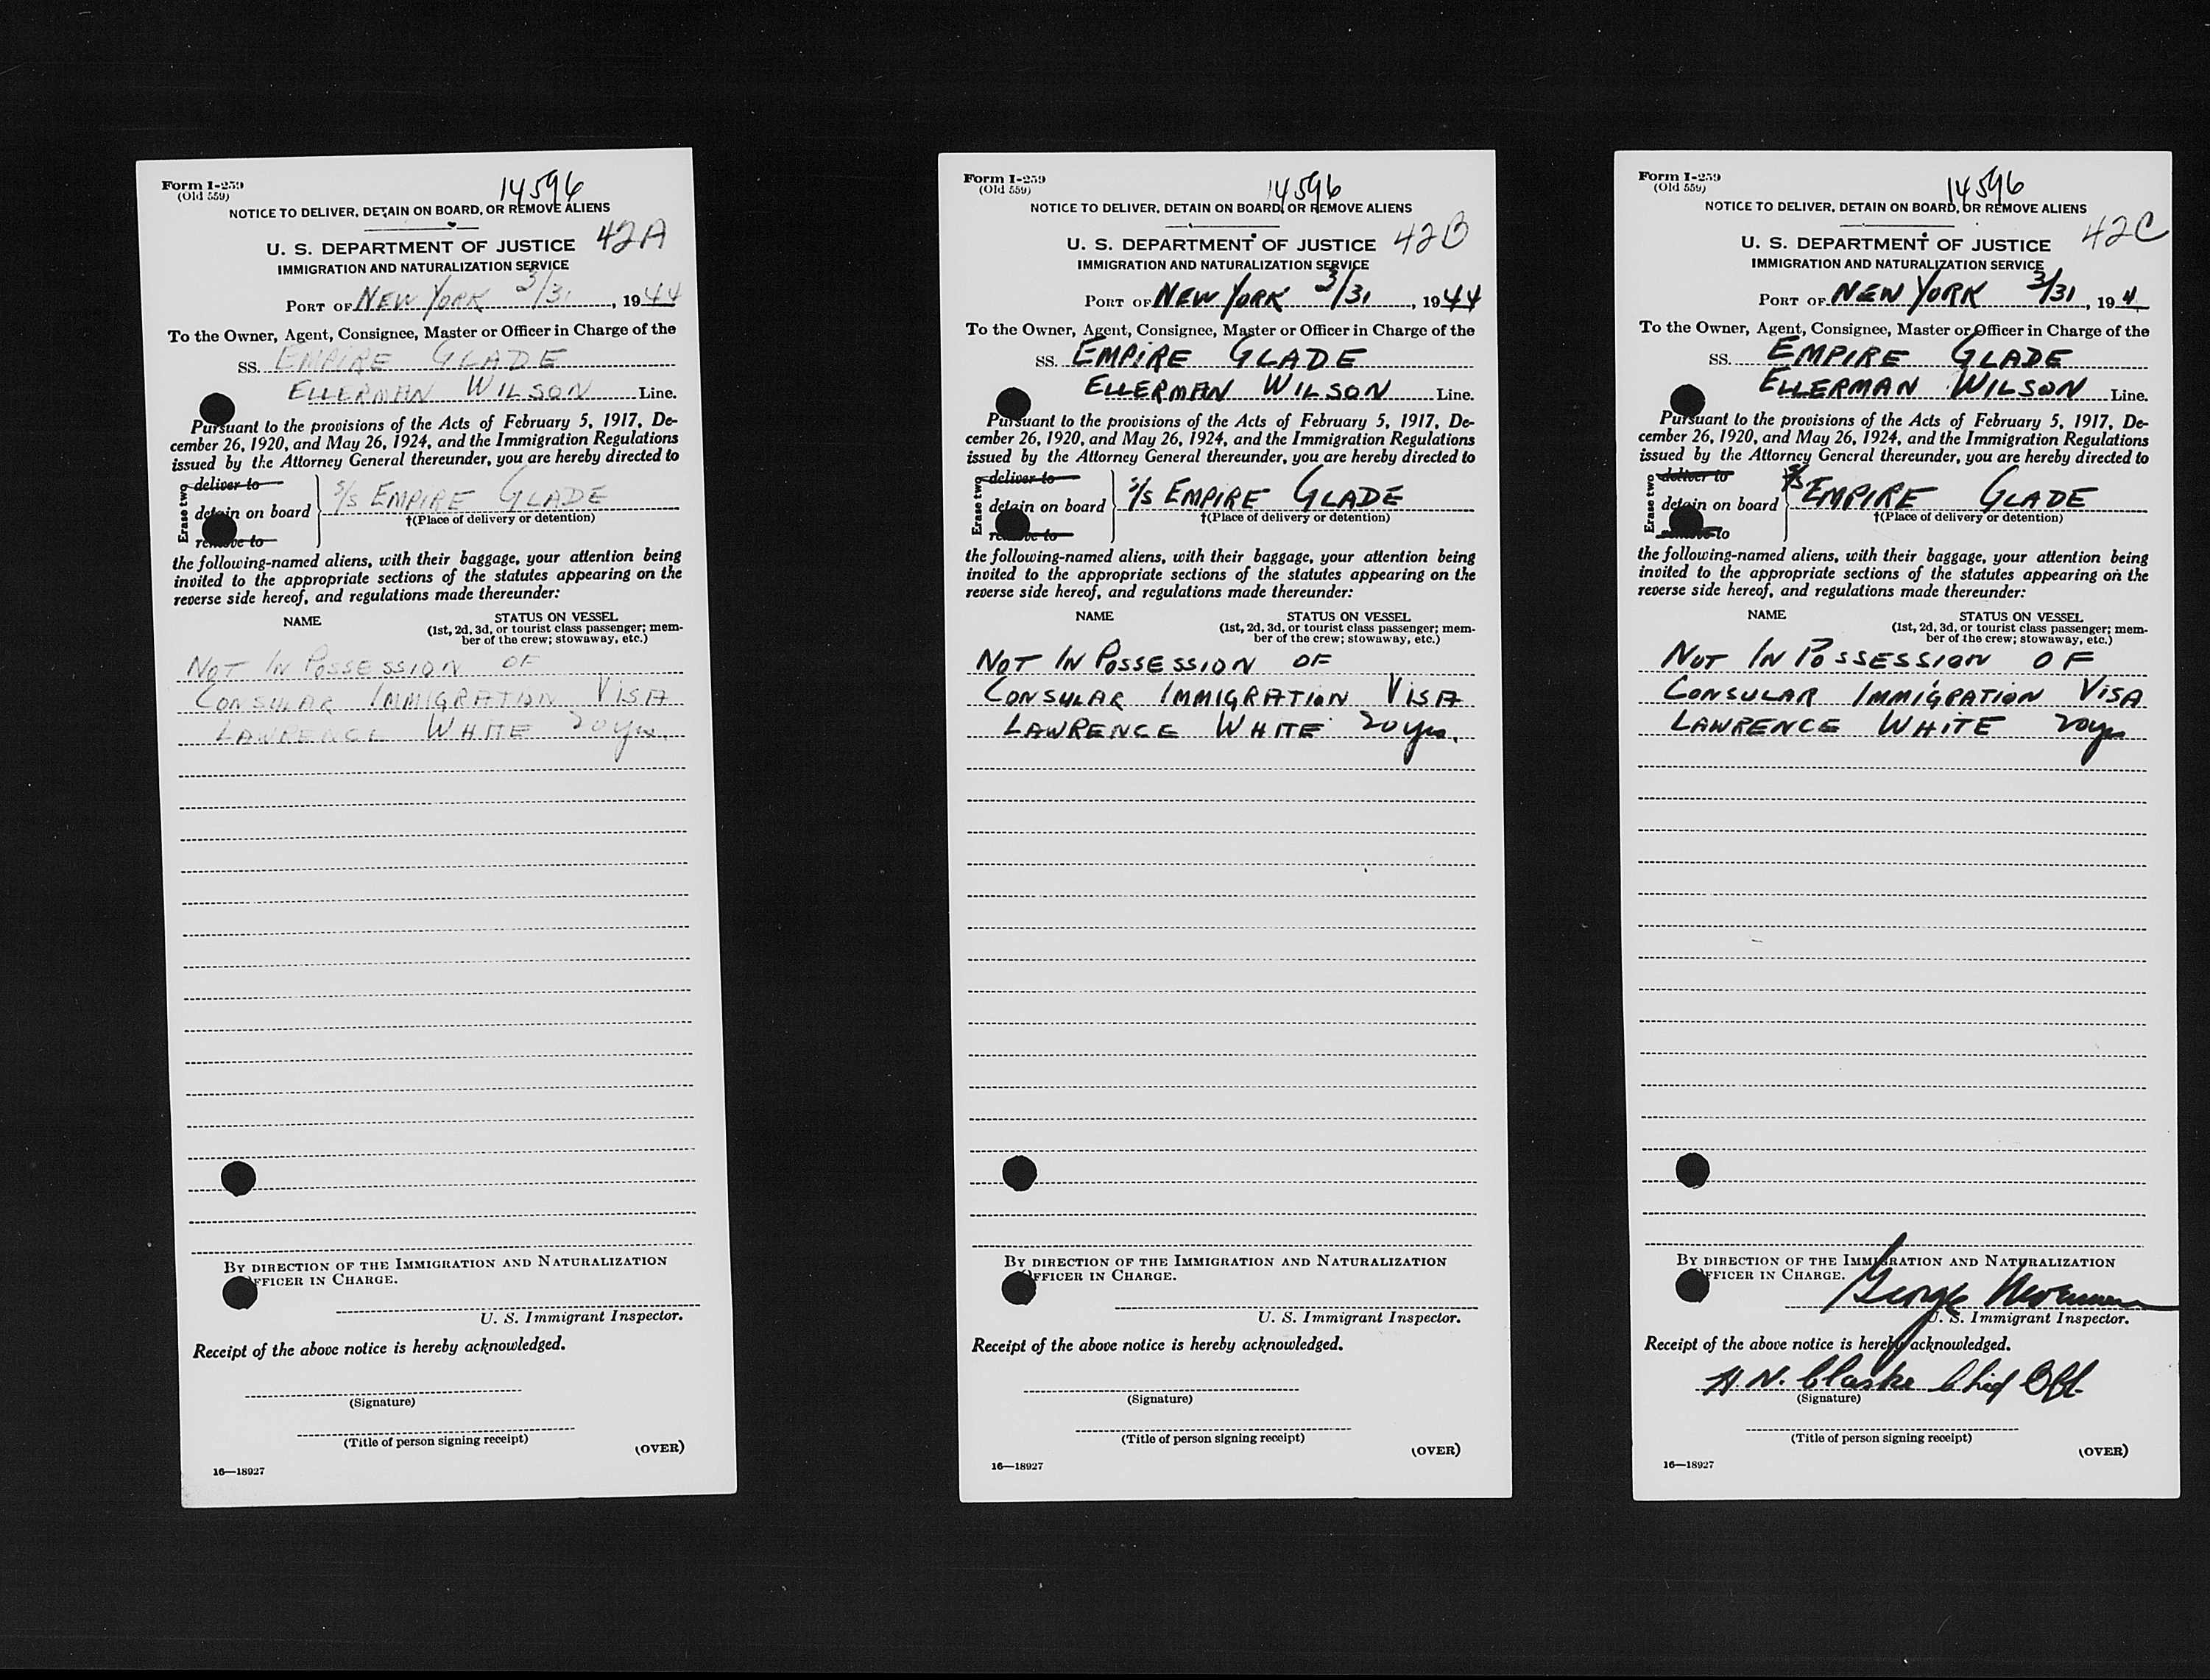 Form I-259
(Old 559)
14596
NOTICE TO DELIVER, DETAIN ON BOARD, OR REMOVE ALIENS
42A
U. S. DEPARTMENT OF JUSTICE
IMMIGRATION AND NATURALIZATION SERVICE
PORT OF NEW YORK 3/31, 1944
To the Owner, Agent, Consignee, Master or Officer in Charge of the
SS. EMPIRE GLADE
ELLERMAN WILSON Line.
Pursuant to the provisions of the Acts of February 5, 1917, De-
cember 26, 1920, and May 26, 1924, and the Immigration Regulations
issued by the Attorney General thereunder, you are hereby directed to
Erase two
deliver to
detain on board
remove to
S/S EMPIRE GLADE
†(Place of delivery or detention)
the following-named aliens, with their baggage, your attention being
invited to the appropriate sections of the statutes appearing on the
reverse side hereof, and regulations made thereunder:
NAME
STATUS ON VESSEL
(1st, 2d, 3d, or tourist class passenger; mem-
ber of the crew; stowaway, etc.)
NOT IN POSSESSION OF
CONSULAR IMMIGRATION VISA
LAWRENCE WHITE 20 yrs.
BY DIRECTION OF THE IMMIGRATION AND NATURALIZATION
OFFICER IN CHARGE.
U. S. Immigrant Inspector.
Receipt of the above notice is hereby acknowledged.
(Signature)
(Title of person signing receipt)
(OVER)
16—18927
Form I-259
(Old 559)
14596
NOTICE TO DELIVER, DETAIN ON BOARD, OR REMOVE ALIENS
42B
U. S. DEPARTMENT OF JUSTICE
IMMIGRATION AND NATURALIZATION SERVICE
PORT OF NEW YORK 3/31, 1944
To the Owner, Agent, Consignee, Master or Officer in Charge of the
SS. EMPIRE GLADE
ELLERMAN WILSON Line.
Pursuant to the provisions of the Acts of February 5, 1917, De-
cember 26, 1920, and May 26, 1924, and the Immigration Regulations
issued by the Attorney General thereunder, you are hereby directed to
Erase two
deliver to
detain on board
remove to
S/S EMPIRE GLADE
†(Place of delivery or detention)
the following-named aliens, with their baggage, your attention being
invited to the appropriate sections of the statutes appearing on the
reverse side hereof, and regulations made thereunder:
NAME
STATUS ON VESSEL
(1st, 2d, 3d, or tourist class passenger; mem-
ber of the crew; stowaway, etc.)
NOT IN POSSESSION OF
CONSULAR IMMIGRATION VISA
LAWRENCE WHITE 20 yrs.
BY DIRECTION OF THE IMMIGRATION AND NATURALIZATION
OFFICER IN CHARGE.
U. S. Immigrant Inspector.
Receipt of the above notice is hereby acknowledged.
(Signature)
(Title of person signing receipt)
(OVER)
16—18927
Form I-259
(Old 559)
14596
NOTICE TO DELIVER, DETAIN ON BOARD, OR REMOVE ALIENS
42C
U. S. DEPARTMENT OF JUSTICE
IMMIGRATION AND NATURALIZATION SERVICE
PORT OF NEW YORK 3/31, 194
To the Owner, Agent, Consignee, Master or Officer in Charge of the
SS. EMPIRE GLADE
ELLERMAN WILSON Line.
Pursuant to the provisions of the Acts of February 5, 1917, De-
cember 26, 1920, and May 26, 1924, and the Immigration Regulations
issued by the Attorney General thereunder, you are hereby directed to
Erase two
deliver to
detain on board
remove to
S/S EMPIRE GLADE
†(Place of delivery or detention)
the following-named aliens, with their baggage, your attention being
invited to the appropriate sections of the statutes appearing on the
reverse side hereof, and regulations made thereunder:
NAME
STATUS ON VESSEL
(1st, 2d, 3d, or tourist class passenger; mem-
ber of the crew; stowaway, etc.)
NOT IN POSSESSION OF
CONSULAR IMMIGRATION VISA
LAWRENCE WHITE 20 yrs
BY DIRECTION OF THE IMMIGRATION AND NATURALIZATION
OFFICER IN CHARGE.
George
U. S. Immigrant Inspector.
Receipt of the above notice is hereby acknowledged.
H. N. Clarke Chief Off.
(Signature)
(Title of person signing receipt)
(OVER)
16—18927